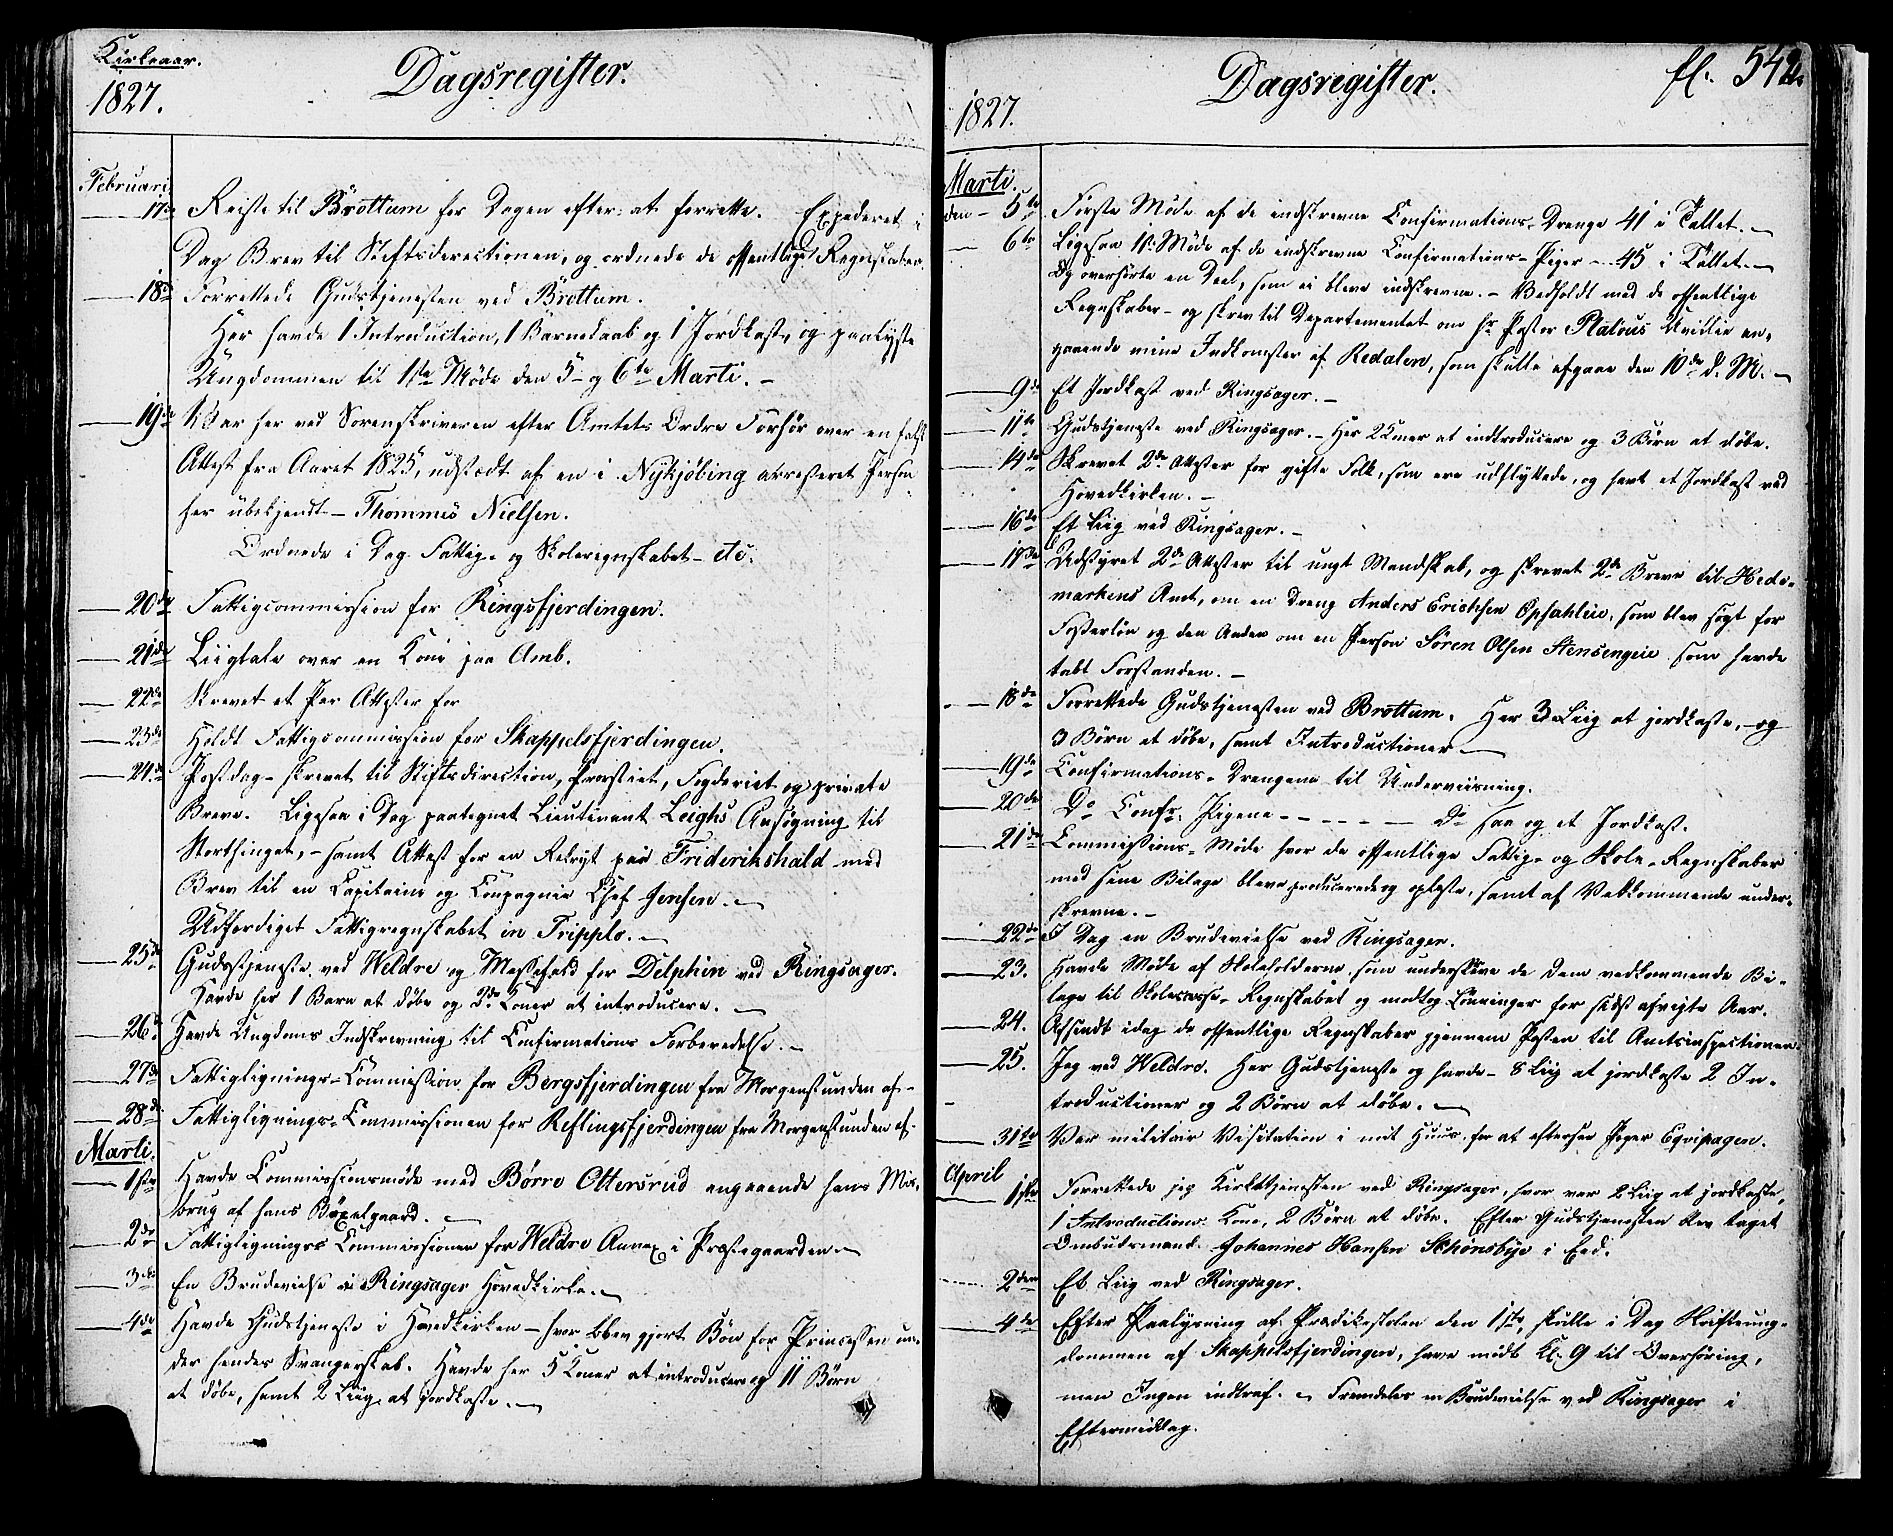 Kirkeaar.
1827.
Dagsregister.
Februari
17de Reiste til Brøttum for Dagen efter at forrette. Expederet i
Dag Brev til Stiftsdirectionen, og ordnede de offentlige Regnskaber.
18de Forrettede Gudstjenesten ved Brøttum.
Her havde 1 Introduction, 1 Barnedaab og 1 Jordkast, og paalyste
Ungdommen til 1ste Møde den 5- og 6te Marti. -
19de Var her ved Sorenskriveren efter Amtets Ordre Forhør over en falsk
Attest fra Aaret 1825, udstædt af en i Nykjøbing arresteret Person
her übekjendt - Thommes Nielsen.
Ordnede i Dag Fattig- og Skoleregnskabet - etc.
20de Fattigcommission for Ringsfjerdingen.
21de Liigtale over en Kone paa Amb.
22de Skrevet et Par Attester for
23de Holdt Fattigcommission for Skappelsfjerdingen.
24de Postdag - skrevet til Stiftsdirection, Provstiet, Fogderiet og private
Breve. Ligesaa i Dag paategnet Lieutenant Leighs Ansøgning til
Storthinget, - samt Attest for en Rekryt paa Friderikshald med
Brev til en Capitaine og Compagnie Chef Jensen. -
Udfærdiget Fattigregnskabet in Tripplo. -
25de Gudstjeneste ved Weldre og Messefald for Delphin ved Ringsager.
Havde her 1 Barn at døbe og 2de Koner at introducere. -
26de Havde Ungdoms Indskrivning til Confirmations Forberedelse. -
27de Fattiglignings-Commission for Bergsfjerdingen fra Morgenstunden af -
28de Fattiglignings-Commissionen for Reflingsfjerdingen fra Morgenstunden af -
Marti.
1ste Havde Commissionsmøde med Børre Ottersrud angaaende hans Mis-
brug af hans Bøxelgaard. -
2de Fattiglignings Commissionen for Weldre Annex i Præstegaarden -
3de En Brudevielse i Ringsager Hovedkirke. -
4de Havde Gudstjeneste i Hovedkirken - hvor blev gjort Bøn for Princessen un-
der hendes Svangerskab. Havde her 5 Koner at introducere og 11 Børn
at døbe, samt 2 Liig at jordkaste. -
1827.
Dagsregister.
fl. 542.
Marti.
den - 5te Første Møde af de indskrevne Confirmations-Drenge 41 i Tallet. -
6te Ligesaa 1ste Møde af de indskrevne Confirmations-Piger - 45 i Tallet. -
Og overhørte en Deel, som ei bleve indskrevne. - Vedholdt med de offentlige
Regnskaber - og skrev til Departementet om Hr. Pastor Platous Uvillie an-
gaaende mine Indkomster af Redalen, som skulle afgaae den 10de d. M. -
9de Et Jordkast ved Ringsager. -
11te Gudstjeneste ved Ringsager. - Her 2 Koner at indtroducere og 3 Børn at døbe.
14de Skrevet 2de Attester for gifte Folk, som ere udflyttede, og havt et Jordkast ved
Hovedkirken. -
16de Et Liig ved Ringsager. -
17de Udstyret 2de Attester til ungt Mandskab, og skrevet 2de Breve til Hede-
markens Amt, om en Dreng Anders Erichsen Opsahleie, som blev søgt for
Fosterløn og den Anden om en Person Søren Olsen Stensengeie som havde
tabt Forstanden. -
18de Forrettede Gudstjenesten ved Brøttum. Her 3 Liig at jordkaste, og
3 Børn at døbe, samt Introductioner -
19de Confirmations-Drengene til Underviisning.
20de Do Confr. Pigene - - - - - Do saa og et Jordkast.
21de Commissions-Møde hvor de offentlige Fattig- og Skole-Regnskaber
med sine Bilage bleve producerede og oplæste, samt af Vedkommende under-
skrevne. -
22de I Dag en Brudevielse ved Ringsager.
23. Havde Møde af Skoleholderne, som underskrev de dem vedkommende Bi-
lage til Skolecasse-Regnskabet og modtog Lønninger for sidst afvigte Aar.
24. Afsendt idag de offentlige Regnskaber gjennem Posten til Amtsinspectionen
25. Jeg ved Weldre. Her Gudstjeneste og havde - 8 Liig at jordkaste 2 In-
troductioner og 2 Børn at døbe. -
31te Var militair Visitation i mit Huus, for at efterse Jæger Eqvipagen.
April
1ste Forrettede jeg Kirketjenesten ved Ringsager, hvor var 2 Liig at jordkaste,
1 Introductions Kone, 2 Børn at døbe. Efter Gudstjenesten blev taget
Ombudsmand Johannes Hansen Schønsbye i Eed.
2den Et Liig ved Ringsager.
4de Efter Paalysning af Prædikestolen den 1ste, skulle i Dag
dommen af Skappelsfjerdingen, have mødt Kl. 9 til Overhøring,
men Ingen indtraf. - Fremdeles en Brudevielse ved Ringsager i
Eftermiddag.